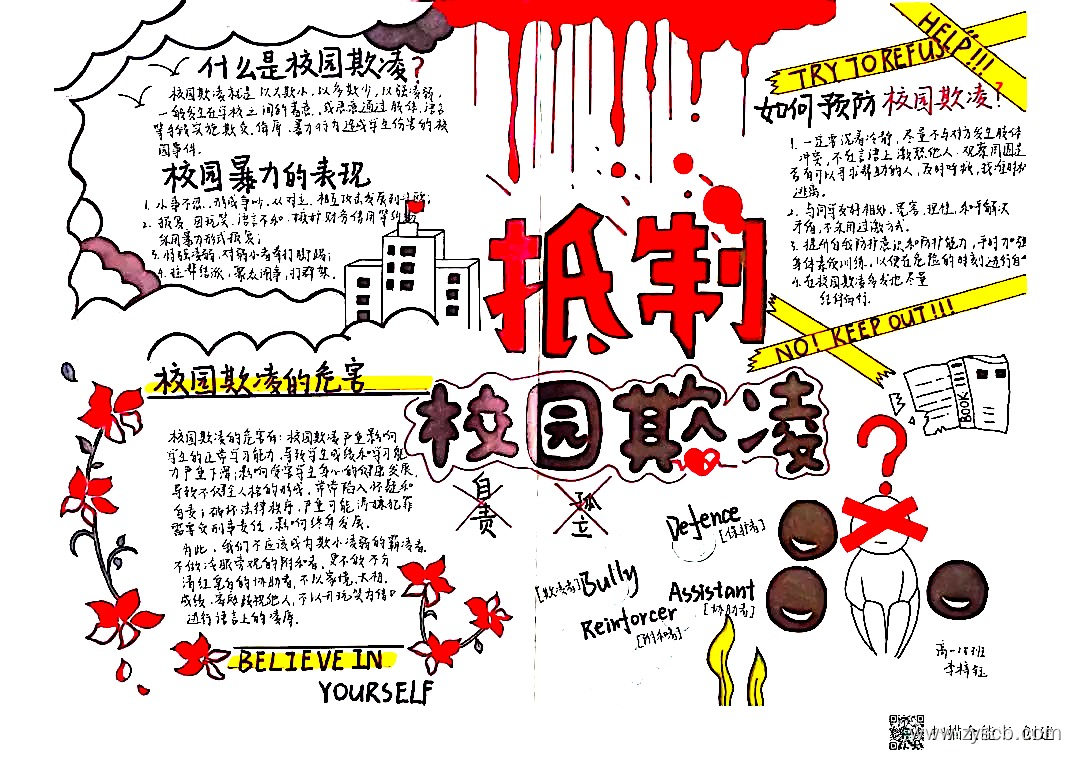 什么是校园欺凌?
校园欺凌就是以大欺小,以多欺少,以强凌弱,
一般发生在学校之间的蓄意,或恶意通过肢体,语言
等手段实施欺负,侮辱,暴力行为造成学生伤害的校
园事件.
校园暴力的表现
1. 小事不忍,形成争吵,从对立,相互攻击发展到斗殴;
采用暴力形式报复;
3. 恃强凌弱,对弱小者拳打脚踢;
4. 拉帮结派,聚众闹事,打群架.
校园欺凌的危害
校园欺凌的危害有:校园欺凌严重影响
学生的正常学习能力,导致学生成绩和学习能
力严重下滑;影响受害学生身心的健康发展,
导致不健全人格的形成,常常陷入怀疑和
自责;破坏法律秩序,严重可能涉嫌犯罪
需要负刑事责任,影响终身发展.
为此,我们不应该成为欺小凌弱的霸凌者,
不做冷眼旁观的附和者,更不做不分
清红皂白的协助者,不以家境,太相,
进行语言上的凌辱.
BELIEVE IN
YOURSELF
抵制
校园欺凌
自责
孤立
Defence
[保护者]
[欺凌者] Bully
Assistant
[协助者]
Reinforcer
[附和者]
HELP!!!
TRY TO REFUSE
如何预防校园欺凌?
1. 一定要沉着冷静,尽量不与对方发生肢体
冲突,不在言语上激怒他人.观察周围是
否有可以寻求帮助的人,及时呼救,找准时机
逃离.
2. 与同学友好相处,宽容,理性,和平解决
矛盾,不采用过激方式.
3. 提升自我防护意识和防护能力,平时加强
身体素质训练,以便在危险的时刻进行自
4. 在校园欺凌多发地尽量
结伴而行.
NO! KEEP OUT!!!
BOOK
?
高一18班
www.zyscb.com